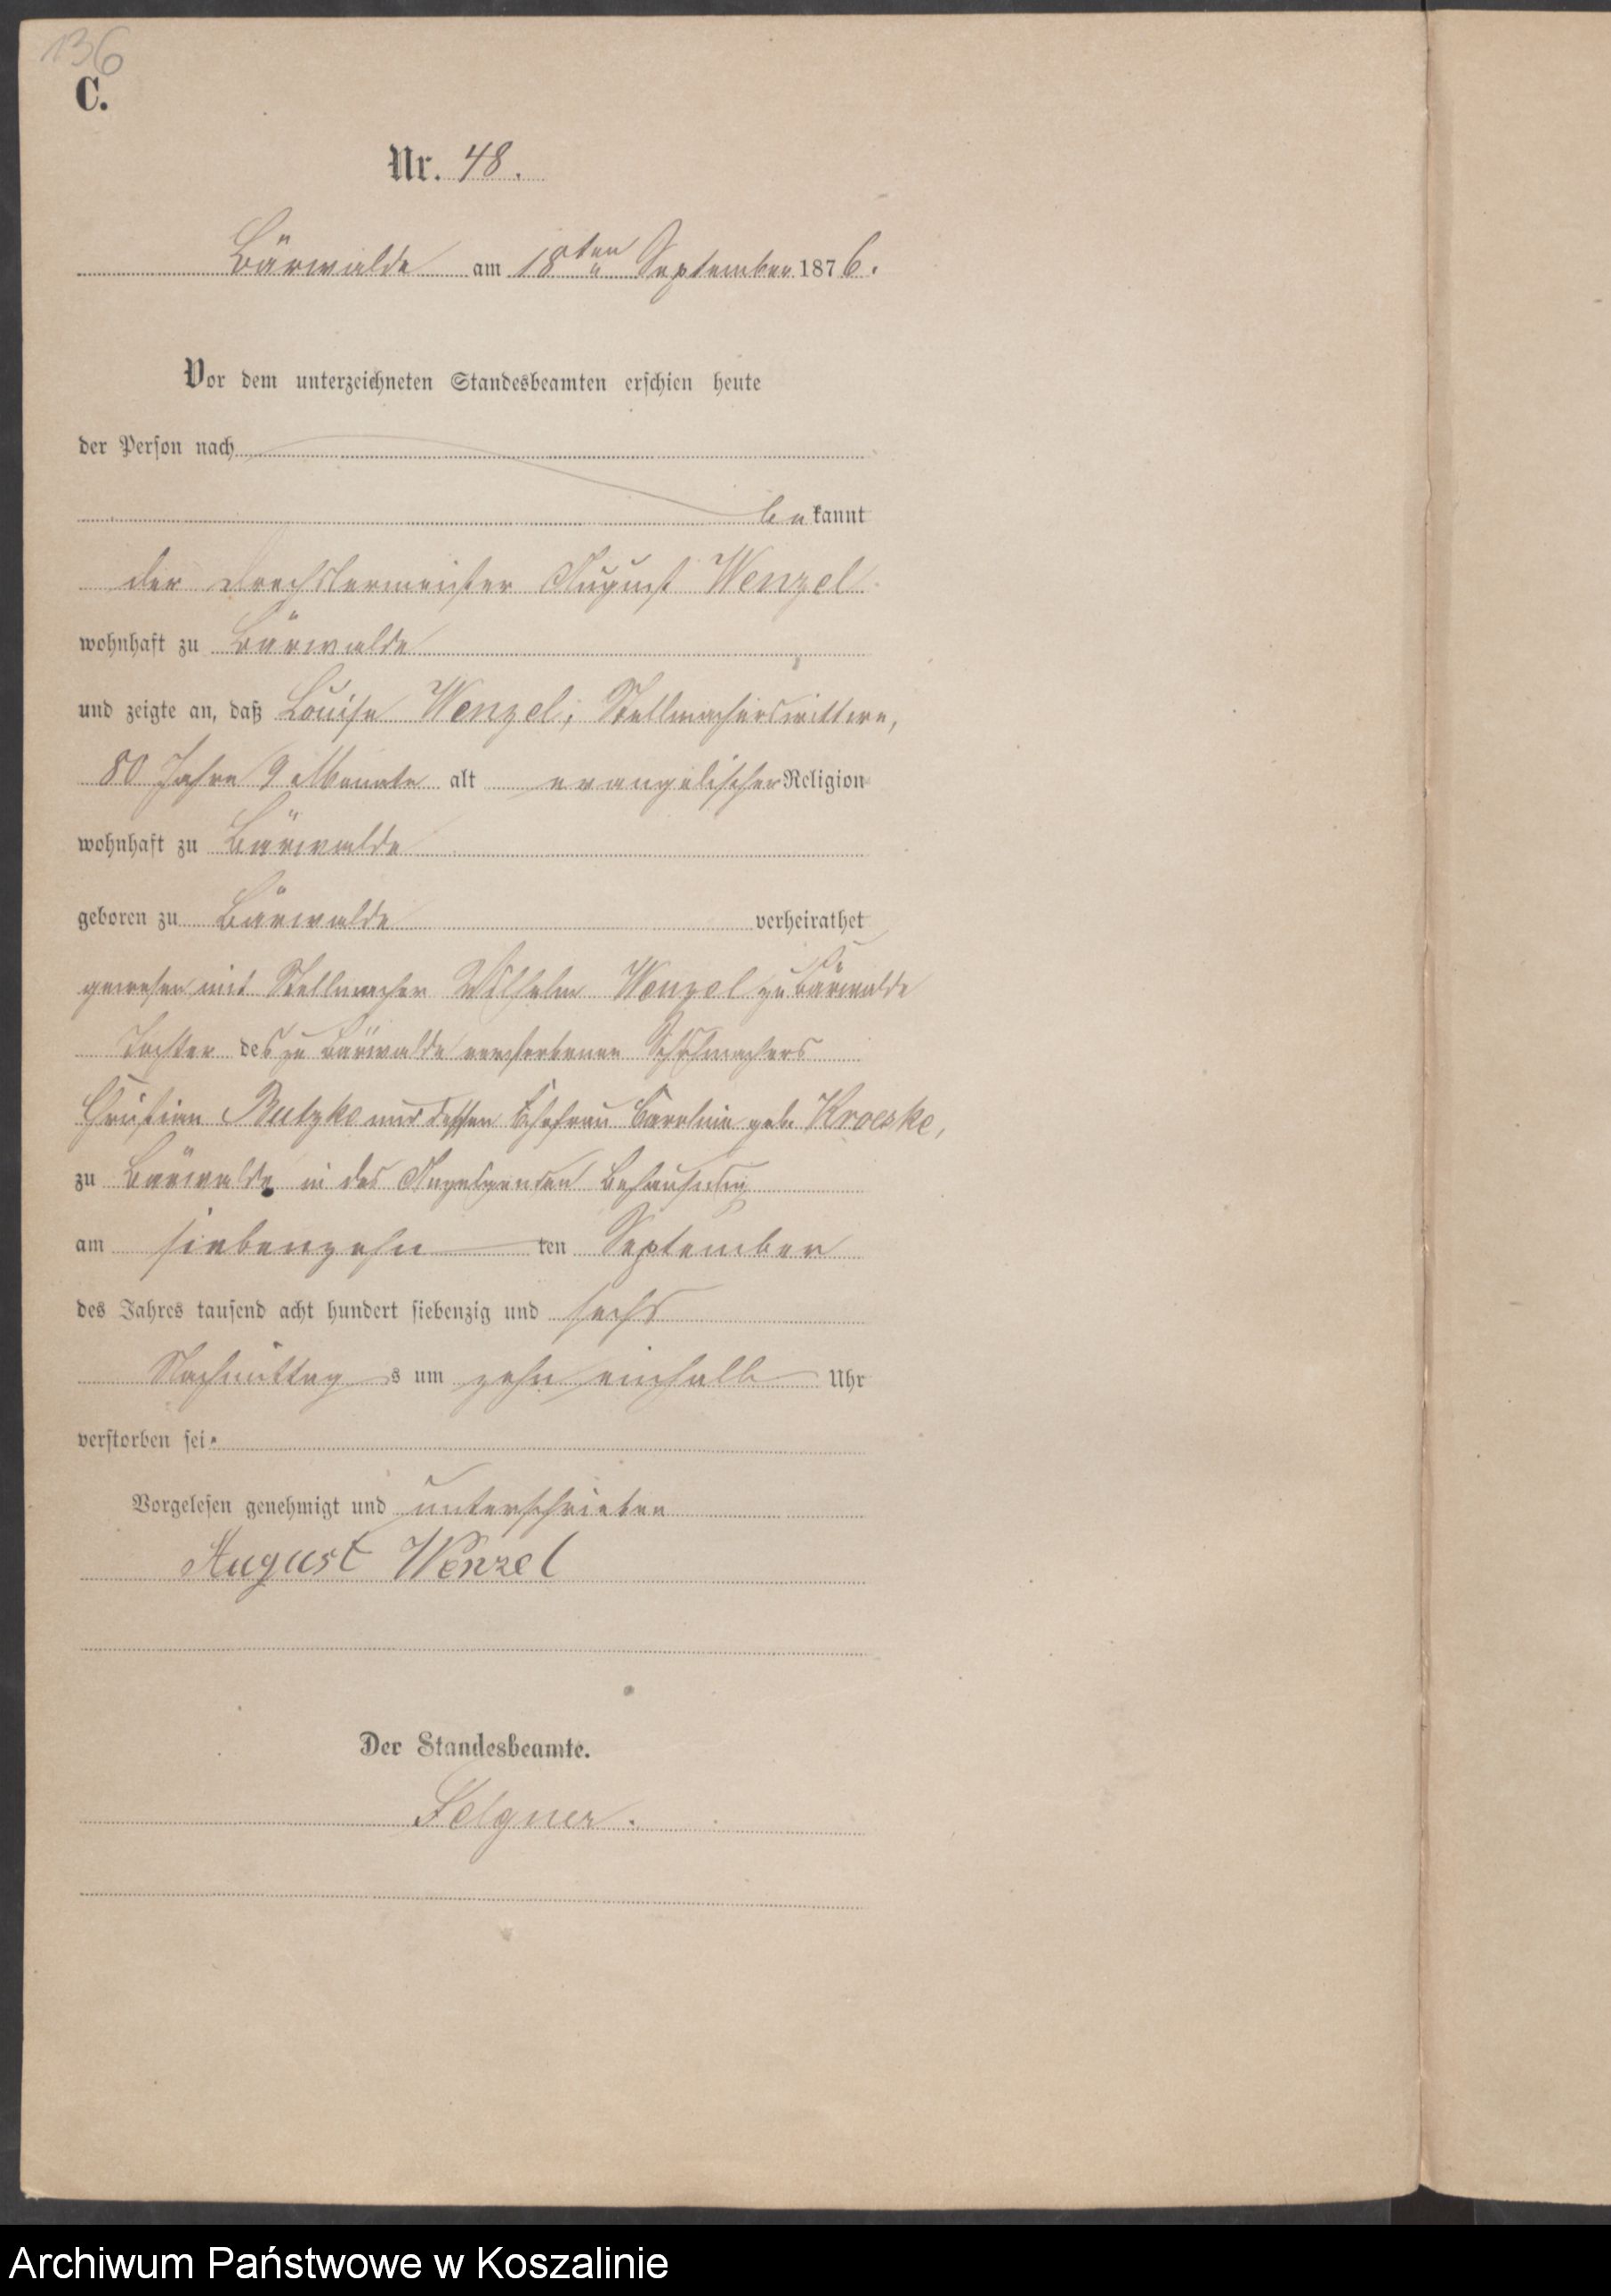 136
C.
Nr. 48.
Bärwalde am 18ten September 1876.
Vor dem unterzeichneten Standesbeamten erschien heute
der Person nach
bekannt
der Drechslermeister August Wenzel
wohnhaft zu Bärwalde
und zeigte an, daß Louise Wenzel, Stellmacherswittwe,
80 Jahre 9 Monate alt evangelischer Religion
wohnhaft zu Bärwalde
geboren zu Bärwalde verheirathet
gewesen mit Stellmacher Wilhelm Wenzel zu Bärwalde
Tochter des zu Bärwalde verstorbenen Schuhmachers
Christian Butzke und dessen Ehefrau Caroline geb. Kroeske,
zu Bärwalde in des Anzeigenden Behausung
am siebenzehn ten September
des Jahres tausend acht hundert siebenzig und sechs
Nachmittag s um zehn einhalb Uhr
verstorben sei.
Vorgelesen genehmigt und unterschrieben
August Wenzel
Der Standesbeamte.
Felgner.
Archiwum Państwowe w Koszalinie